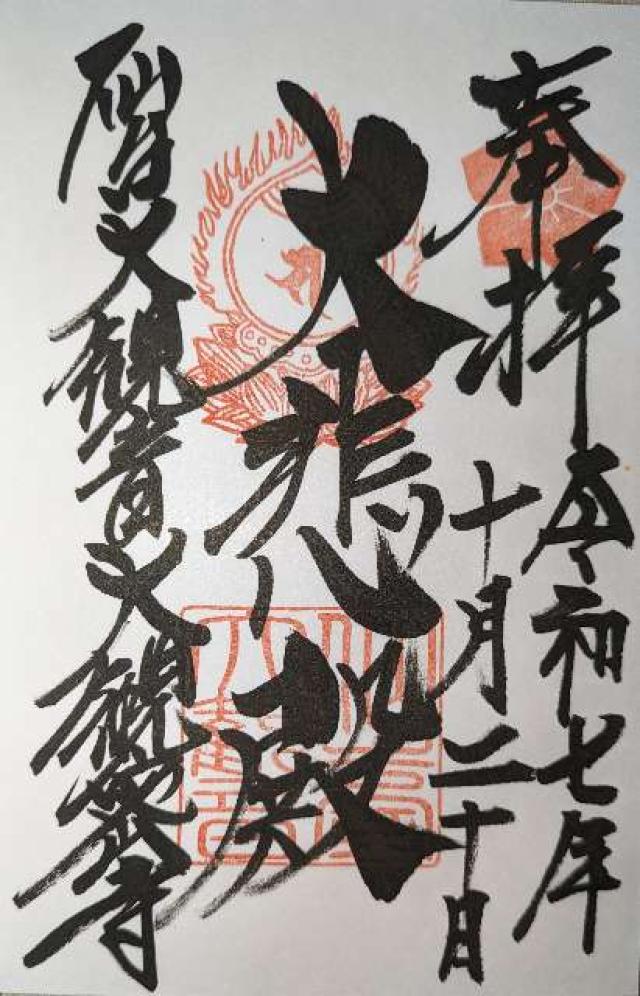 奉拝 令和七年
十月二十日
大悲殿
大観音大観密寺